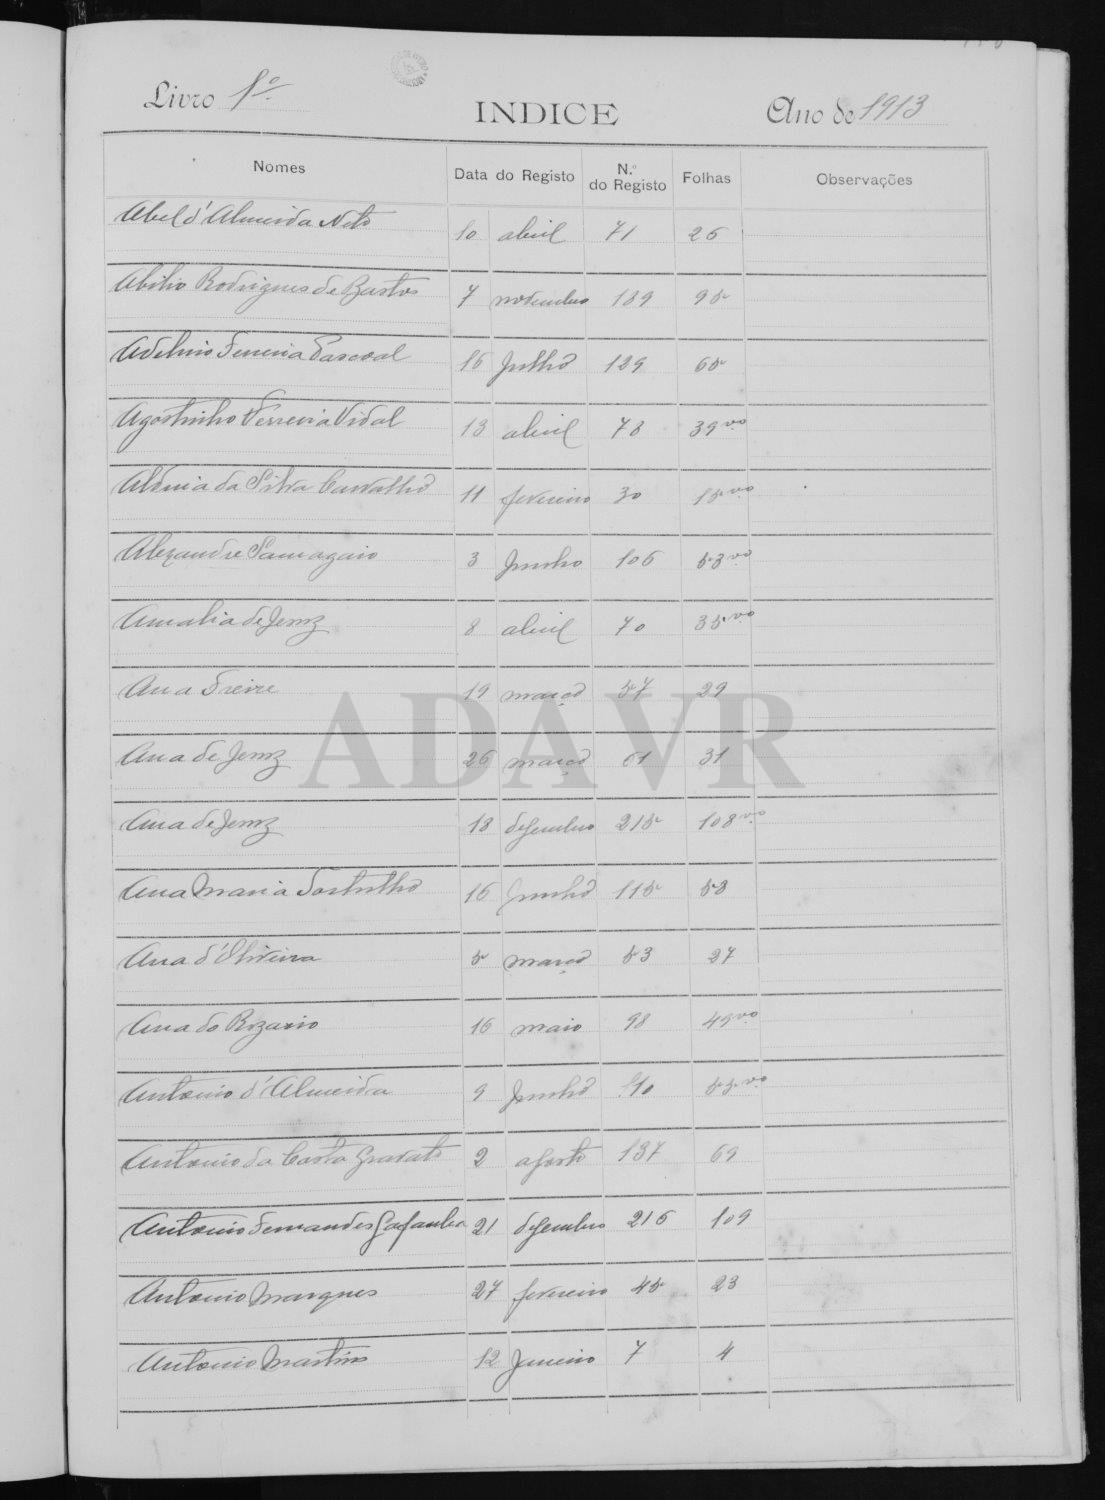 Livro 1º
INDICE
Ano de 1913
Nomes Data do Registo N.º do Registo Folhas Observações
Abel d'Almeida Neto 10 abril 71 26
Abilio Rodrigues de Bastos 7 novembro 189 95
Adelino Ferreira Pascoal 16 Julho 129 65
Agostinho Ferreira Vidal 13 abril 78 39vo
Albina da Silva Carvalho 11 fevereiro 30 15vo
Alexandre Samagaio 3 Junho 106 53vo
Amalia de Jesus 8 abril 70 35vo
Ana Freire 19 março 57 29
Ana de Jesus 26 março 61 31
Ana de Jesus 18 desembro 215 108vo
Ana Maria 16 Junho 115 58
Ana d'Oliveira 5 março 53 27
Ana do Rozario 16 maio 98 49vo
Antonio d'Almeida 9 Junho 110 55vo
Antonio da Costa Gravato 2 agosto 137 69
Antonio Fernandes Gafanha 21 desembro 216 109
Antonio Marques 27 fevereiro 45 23
Antonio Martins 12 Janeiro 7 4
ADAVR